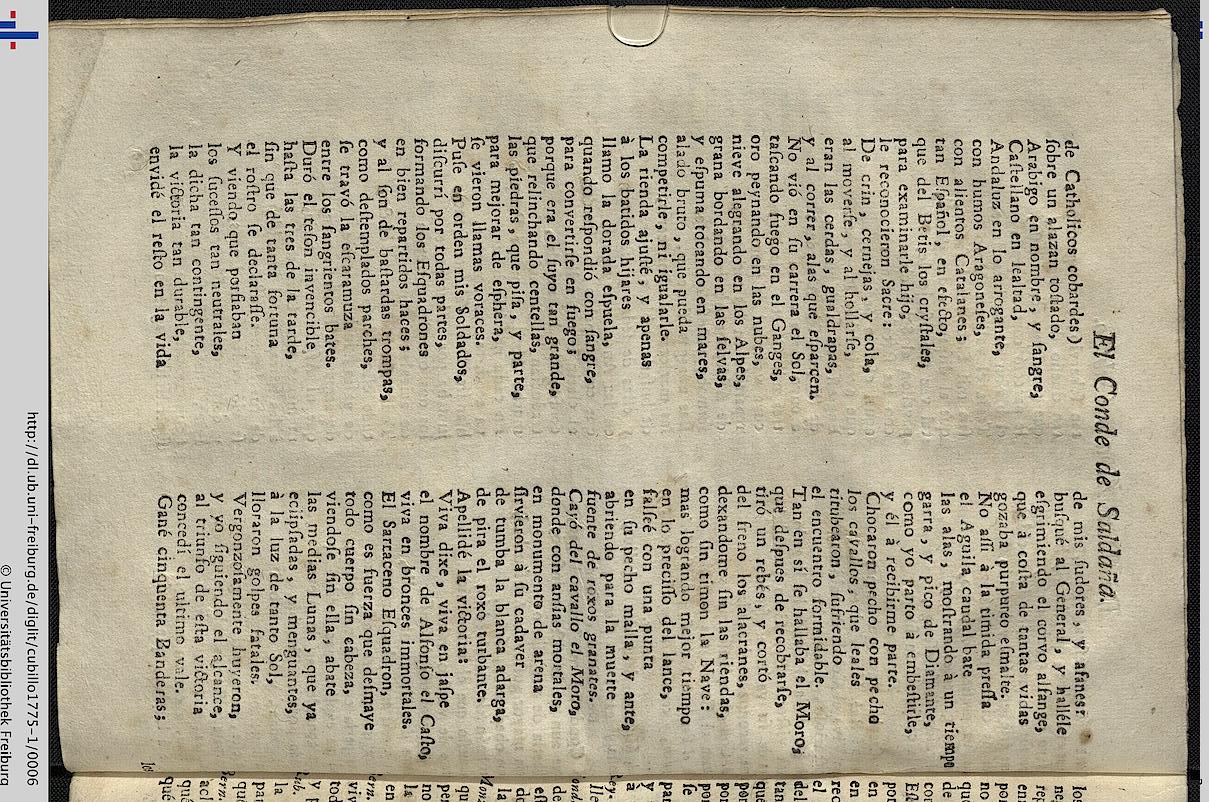 El Conde de Saldaña.
de Catholicos cobardes)
ſobre un alazan toſtado,
Arabigo en nombre, y ſangre,
Caſtellano en lealtad,
Andaluz en lo arrogante,
con humos Aragoneſes,
con alientos Catalanes;
tan Eſpañol, en efecto,
que del Betis los cryſtales,
para examinarle hijo,
le reconocieron Sacre:
De crin, cernejas, y cola,
al moverſe, y al hollarſe,
eran las cerdas, gualdrapas,
y al correr, alas que eſparcen.
No viò en ſu carrera el Sol,
taſcando fuego en el Ganges,
oro peynando en las nubes,
nieve alegrando en los Alpes,
grana bordando en las ſelvas,
y eſpuma tocando en mares,
alado bruto, que pueda
competirle, ni igualarle.
La rienda ajuſtè, y apenas
à los batidos hijares
llamo la dorada eſpuela,
quando reſpondiò con ſangre,
para convertirſe en fuego;
porque era el ſuyo tan grande,
que relinchando centellas,
las piedras, que piſa, y parte,
para mejorar de eſphera,
ſe vieron llamas voraces.
Puſe en orden mis Soldados,
diſcurrì por todas partes,
formando los Eſquadrones
en bien repartidos haces;
y al ſon de baſtardas trompas,
como deſtemplados parches,
ſe travò la eſcaramuza
entre los ſangrientos bates.
Durò el teſon invencible
haſta las tres de la tarde,
ſin que de tanta fortuna
el roſtro ſe declaraſſe.
Y viendo que porfiaban
los ſuceſſos tan neutrales,
la dicha tan contingente,
la victoria tan durable,
envidè el reſto en la vida
de mis ſudores, y afanes:
buſquè al General, y hallèle
eſgrimiendo el corvo alfange,
que à coſta de tantas vidas
gozaba purpureo eſmalte.
No aſſi à la timida preſſa
el Aguila caudal bate
garra, y pico de Diamante,
las alas, moſtrando à un tiempo
como yo parto à embeſtirle,
y èl à recibirme parte.
Chocaron pecho con pecho
los cavallos, que leales
titubearon, ſufriendo
el encuentro formidable.
Tan en sì ſe hallaba el Moro,
que deſpues de recobrarſe,
tirò un rebès, y cortò
del freno los alacranes,
dexandome ſin las riendas,
como ſin timon la Nave:
mas logrando mejor tiempo
en lo preciſo del lance,
falſeè con una punta
en ſu pecho malla, y ante,
abriendo para la muerte
fuente de roxos granates.
Cayò del cavallo el Moro,
donde con anſias mortales,
en monumento de arena
ſirvieron à ſu cadaver
de tumba la blanca adarga,
de pira el roxo turbante.
Apellidè la victoria:
Viva dixe, viva en jaſpe
el nombre de Alfonſo el Caſto,
viva en bronces immortales.
El Sarraceno Eſquadron,
como es fuerza que deſmaye
todo cuerpo ſin cabeza,
viendoſe ſin ella, abate
las medias Lunas, que ya
eclipſadas, y menguantes,
à la luz de tanto Sol,
lloraron golpes fatales.
Vergonzoſamente huyeron,
y yo ſiguiendo el alcance,
al triunfo de eſta victoria
concedì el ultimo vale.
Ganè cinquenta Banderas;
http://dl.ub.uni-freiburg.de/diglit/cubillo1775-1/0006
© Universitätsbibliothek Freiburg